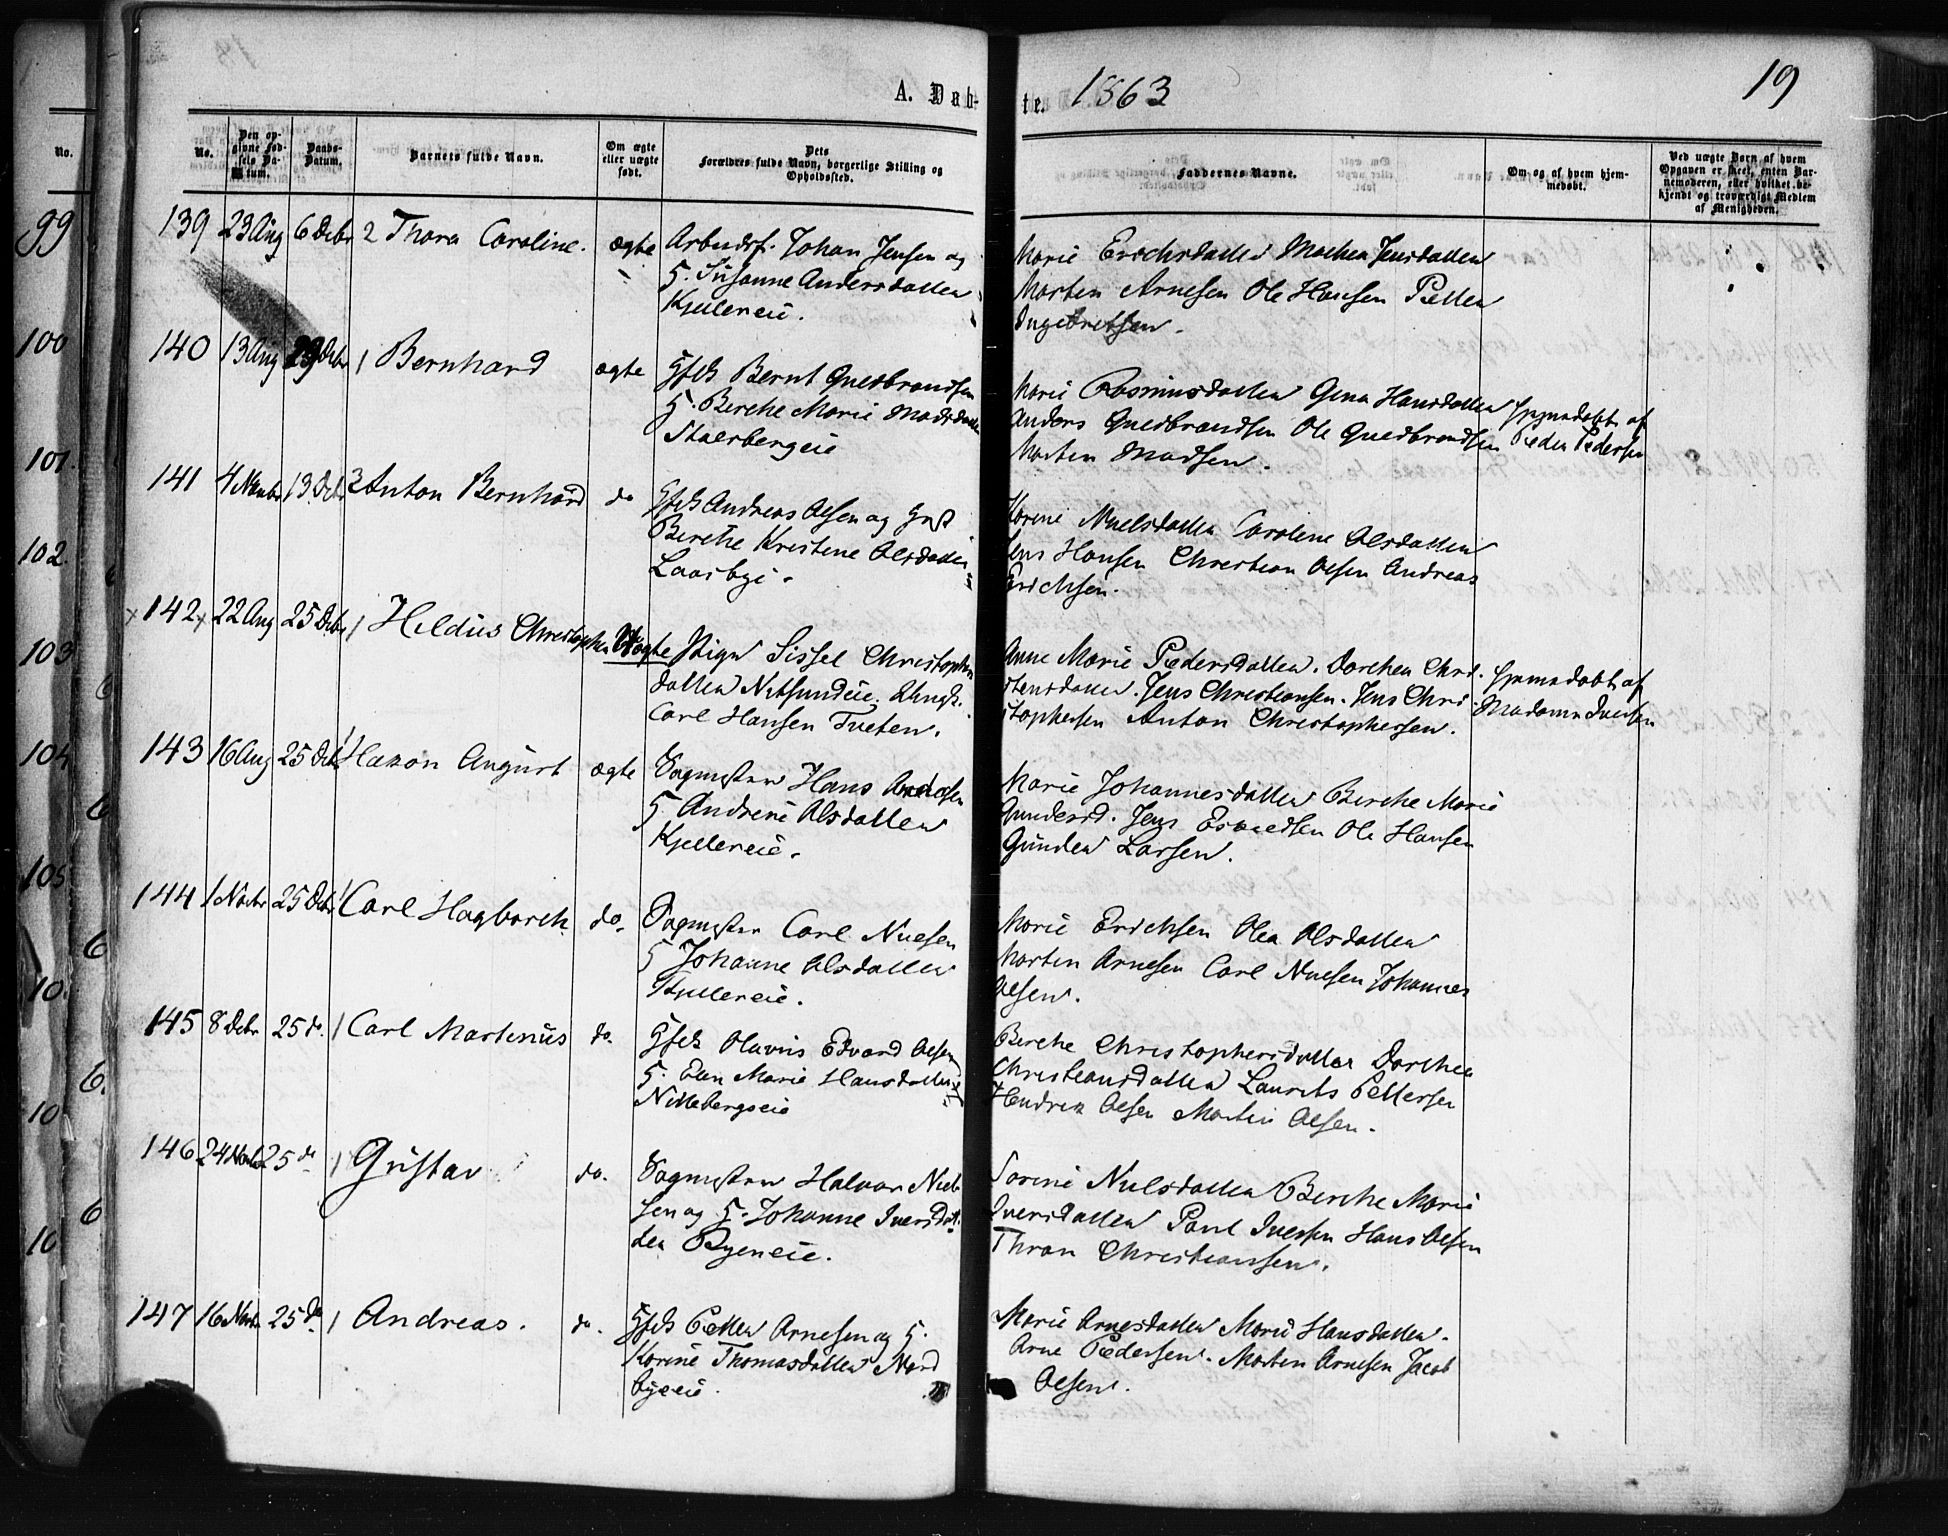 A. Døb-
te. 1863
19
No.
No.
Den op-
givne Fød-
sels Da-
tum.
Daabs-
Datum.
Barnets fulde Navn.
Om ægte
eller uægte
født.
Dets
Forældres fulde Navn, borgerlige Stilling og
Opholdssted.
Faddernes Navne.
Om og af hvem hjem-
medøbt.
Ved uægte Børn af hvem
Opgaven er skeet, enten Bar-
nemoderen, eller hvilket be-
kjendt og troværdigt Medlem
af Menigheden.
99
100
101
102
103
104
105
139 23 Aug 6 Debr 2 Thora Caroline. ægte Arbudsf. Johan Jensen og
H. Susanne Andersdatter
Kjellereie.
Marie Erichsdatter Mathea Jensdatter
Morten Arnesen Ole Hansen Petter
Ingebretsen.
140 13 Aug Debr 1 Bernhard ægte Gfsk Bernt Guldbrandsen
H. Berthe Marie Madsdatter
Stalsbergeie
Marie Rasmusdatter Gina Hansdatter
Anders Guldbrandsen Ole Guldbrandsen
Morten Madsen.
Hjemmedøbt af
Peder Pedersen
141 4 Novbr 13 Debr 3 Anton Bernhard do Gfsk Andreas Olsen og
Berthe Kristine Olsdatter
Laasbye.
Karine Nielsdatter Caroline Olsdatter
Jens Hansen Christian Olsen Andreas
Erichsen.
142 22 Aug 25 Debr 1 Hildus Christopher Uægte Pige Sissel Christopher
datter Nitsundeie. Ungk.
Carl Hansen Tveten.
Anne Marie Pedersdatter. Dorthea Chri-
stensdatter. Jens Christiansen. Jens Chri-
stophersen Anton Christophersen.
Hjemmedøbt af
Madame Iversen
143 16 Aug 25 Debr 1 Hakon August ægte Sagmester Hans
H Andrine Olsdatter
Kjellereie.
Marie Johannesdatter Berthe Marie
Gundersd. Jens Ole Hansen
Gunder Larsen.
144 1 Novbr 25 Debr 1 Carl Hagbarth do. Sagmester Carl Nielsen
H Johanne Olsdatter
Kjellereie.
Marie Erichsen Olea Olsdatter
Morten Arnesen Carl Nielsen Johannes
Olsen.
145 8 Debr 25 do. 1 Carl Martinus do. Gfsk Olavus Edvard Olsen
H. Elen Marie Hansdatter
Nittebergseie
Berthe Christophersdatter Dorthea
Christiansdatter Laurits Pettersen
Hendrik Olsen Martin Olsen.
146 24 Novbr 25 do 1 Gustav do. Sagmester Halvor Niel-
sen og H. Johanne Iversdat-
ter Ryeneie.
Sorine Nielsdatter Berthe Marie
Iversdatter Paul Iversen Hans Olsen
Thron Christiansen.
147 16 Novbr 25 do 1 Andreas. do. Gfsk Petter Arnesen og H.
Karine Thomasdatter Nord
byeie.
Marie Arnesdatter Marie Hansdatter.
Arne Pedersen. Morten Arnesen Jacob
Olsen.